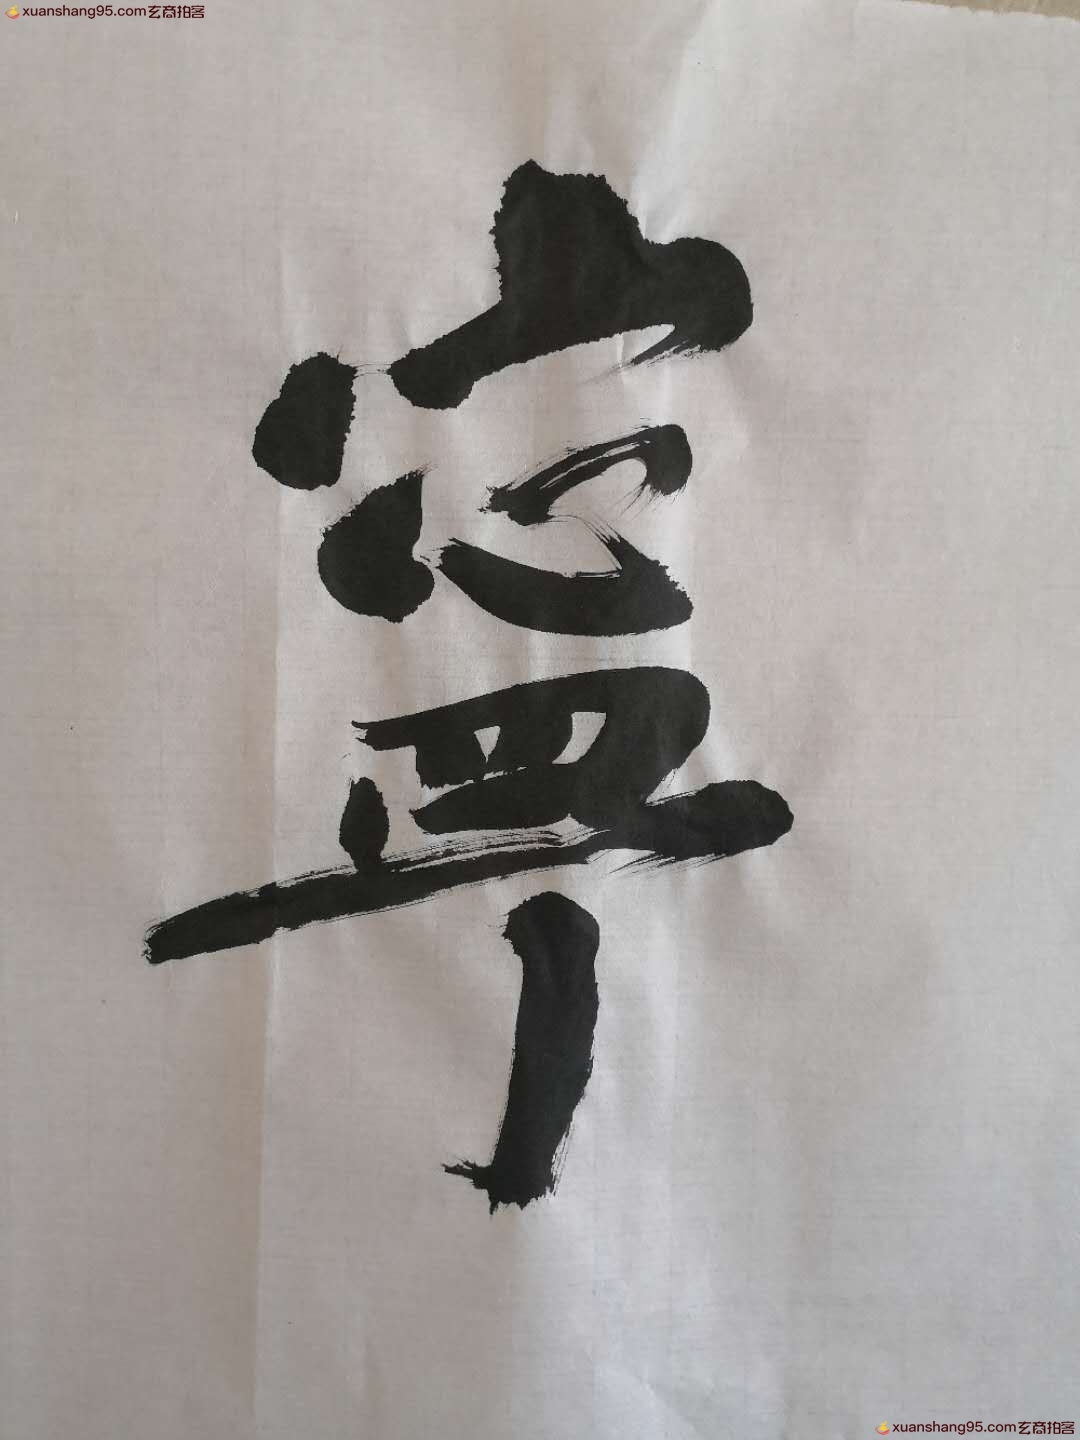 xuanshang95.com玄商拍客
寧
xuanshang95.com玄商拍客